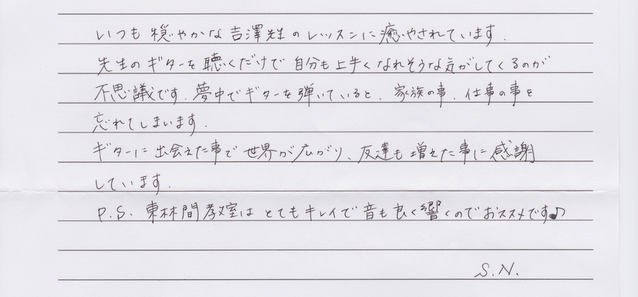 いつも穏やかな吉澤先生のレッスンに癒やされています.
先生のギターを聴くだけで自分も上手くなれそうな気がしてくるのが
不思議です.夢中でギターを弾いていると、家族の事、仕事の事を
忘れてしまいます.
ギターに出会えた事で世界が広がり、友達も増えた事に感謝
しています.
P.S. 東林間教室はとてもキレイで音も良く響くのでおススメです♪
S.N.